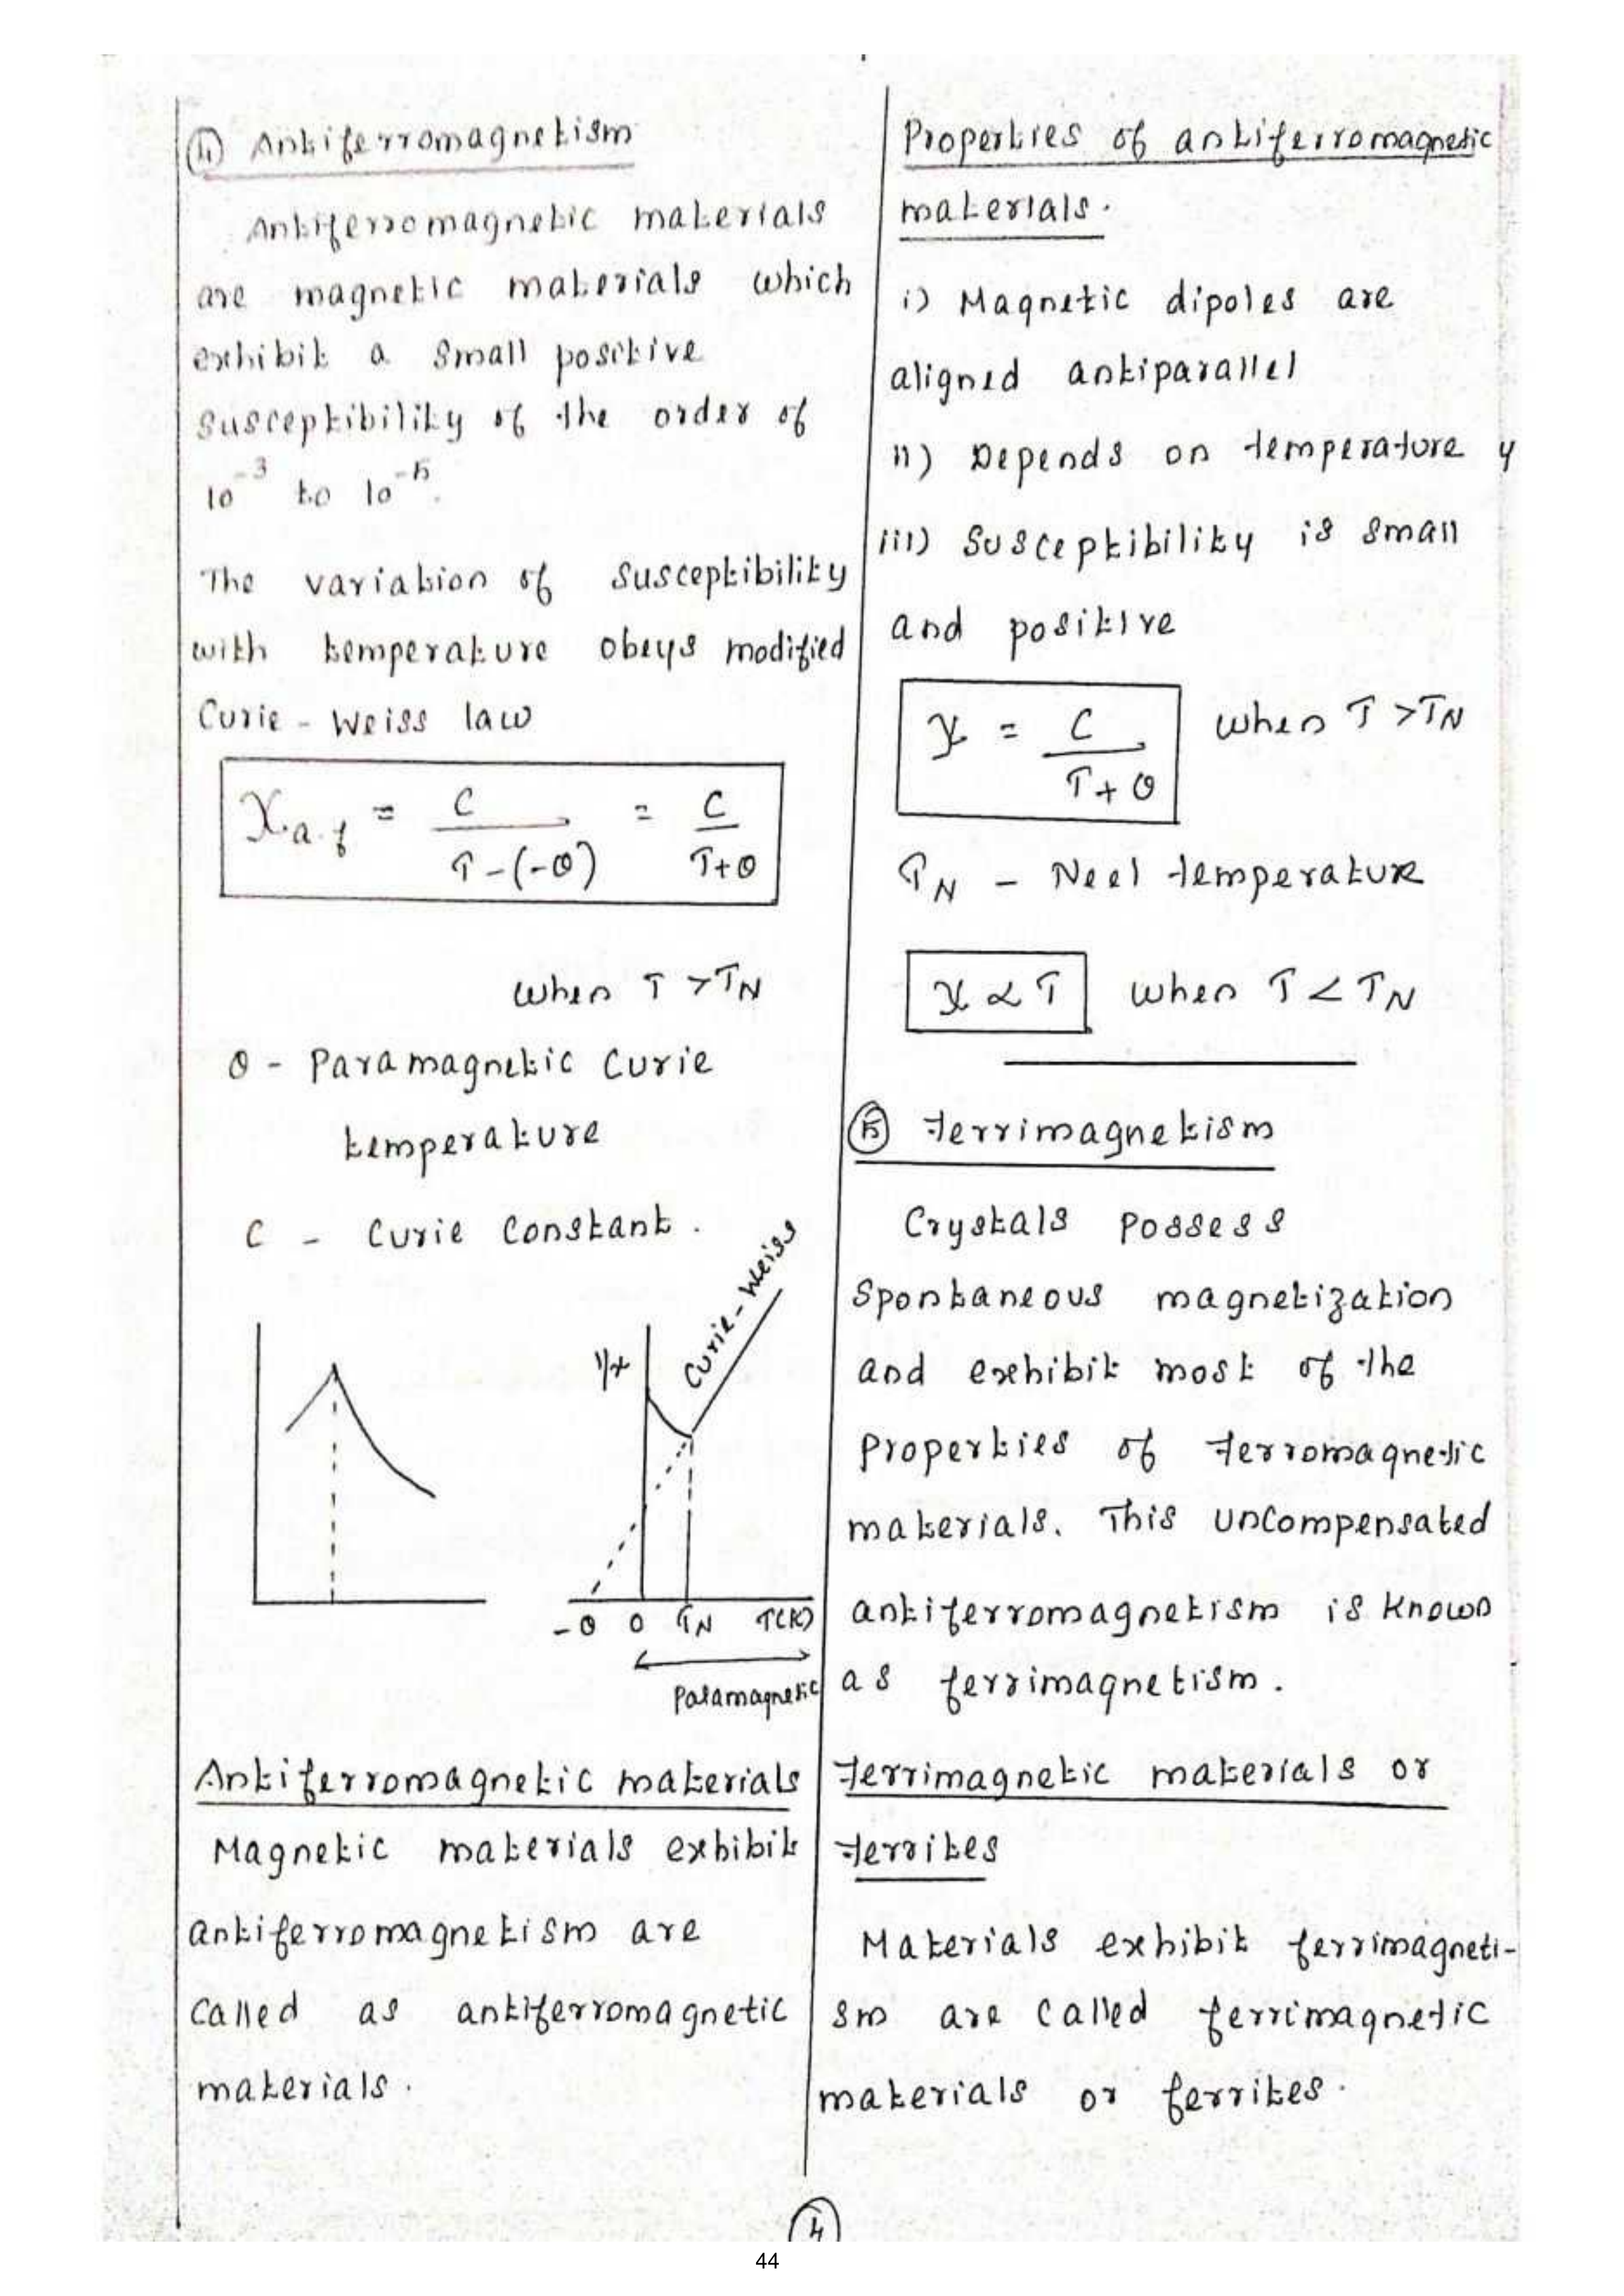 ④ Antiferromagnetism
Antiferromagnetic materials
are magnetic materials which
exhibit a small positive
susceptibility of the order of
10⁻³ to 10⁻⁵.
The variation of susceptibility
with temperature obeys modified
Curie - Weiss law
χa.f = C / T-(-θ) = C / T+θ
when T > TN
θ - Paramagnetic Curie
temperature
C - Curie Constant.
1/χ
Curie-Weiss
-θ 0 TN T(K)
Paramagnetic
Antiferromagnetic materials
Magnetic materials exhibit
antiferromagnetism are
called as antiferromagnetic
materials.
Properties of antiferromagnetic
materials.
i) Magnetic dipoles are
aligned antiparallel
ii) Depends on temperature y
iii) Susceptibility is small
and positive
χ = C / T+θ when T > TN
TN - Neel temperature
χ ∝ T when T < TN
⑤ Ferrimagnetism
Crystals possess
Spontaneous magnetization
and exhibit most of the
properties of Ferromagnetic
materials. This uncompensated
antiferromagnetism is known
as ferrimagnetism.
Ferrimagnetic materials or
Ferrites
Materials exhibit ferrimagneti-
sm are called ferrimagnetic
materials or ferrites.
4
44